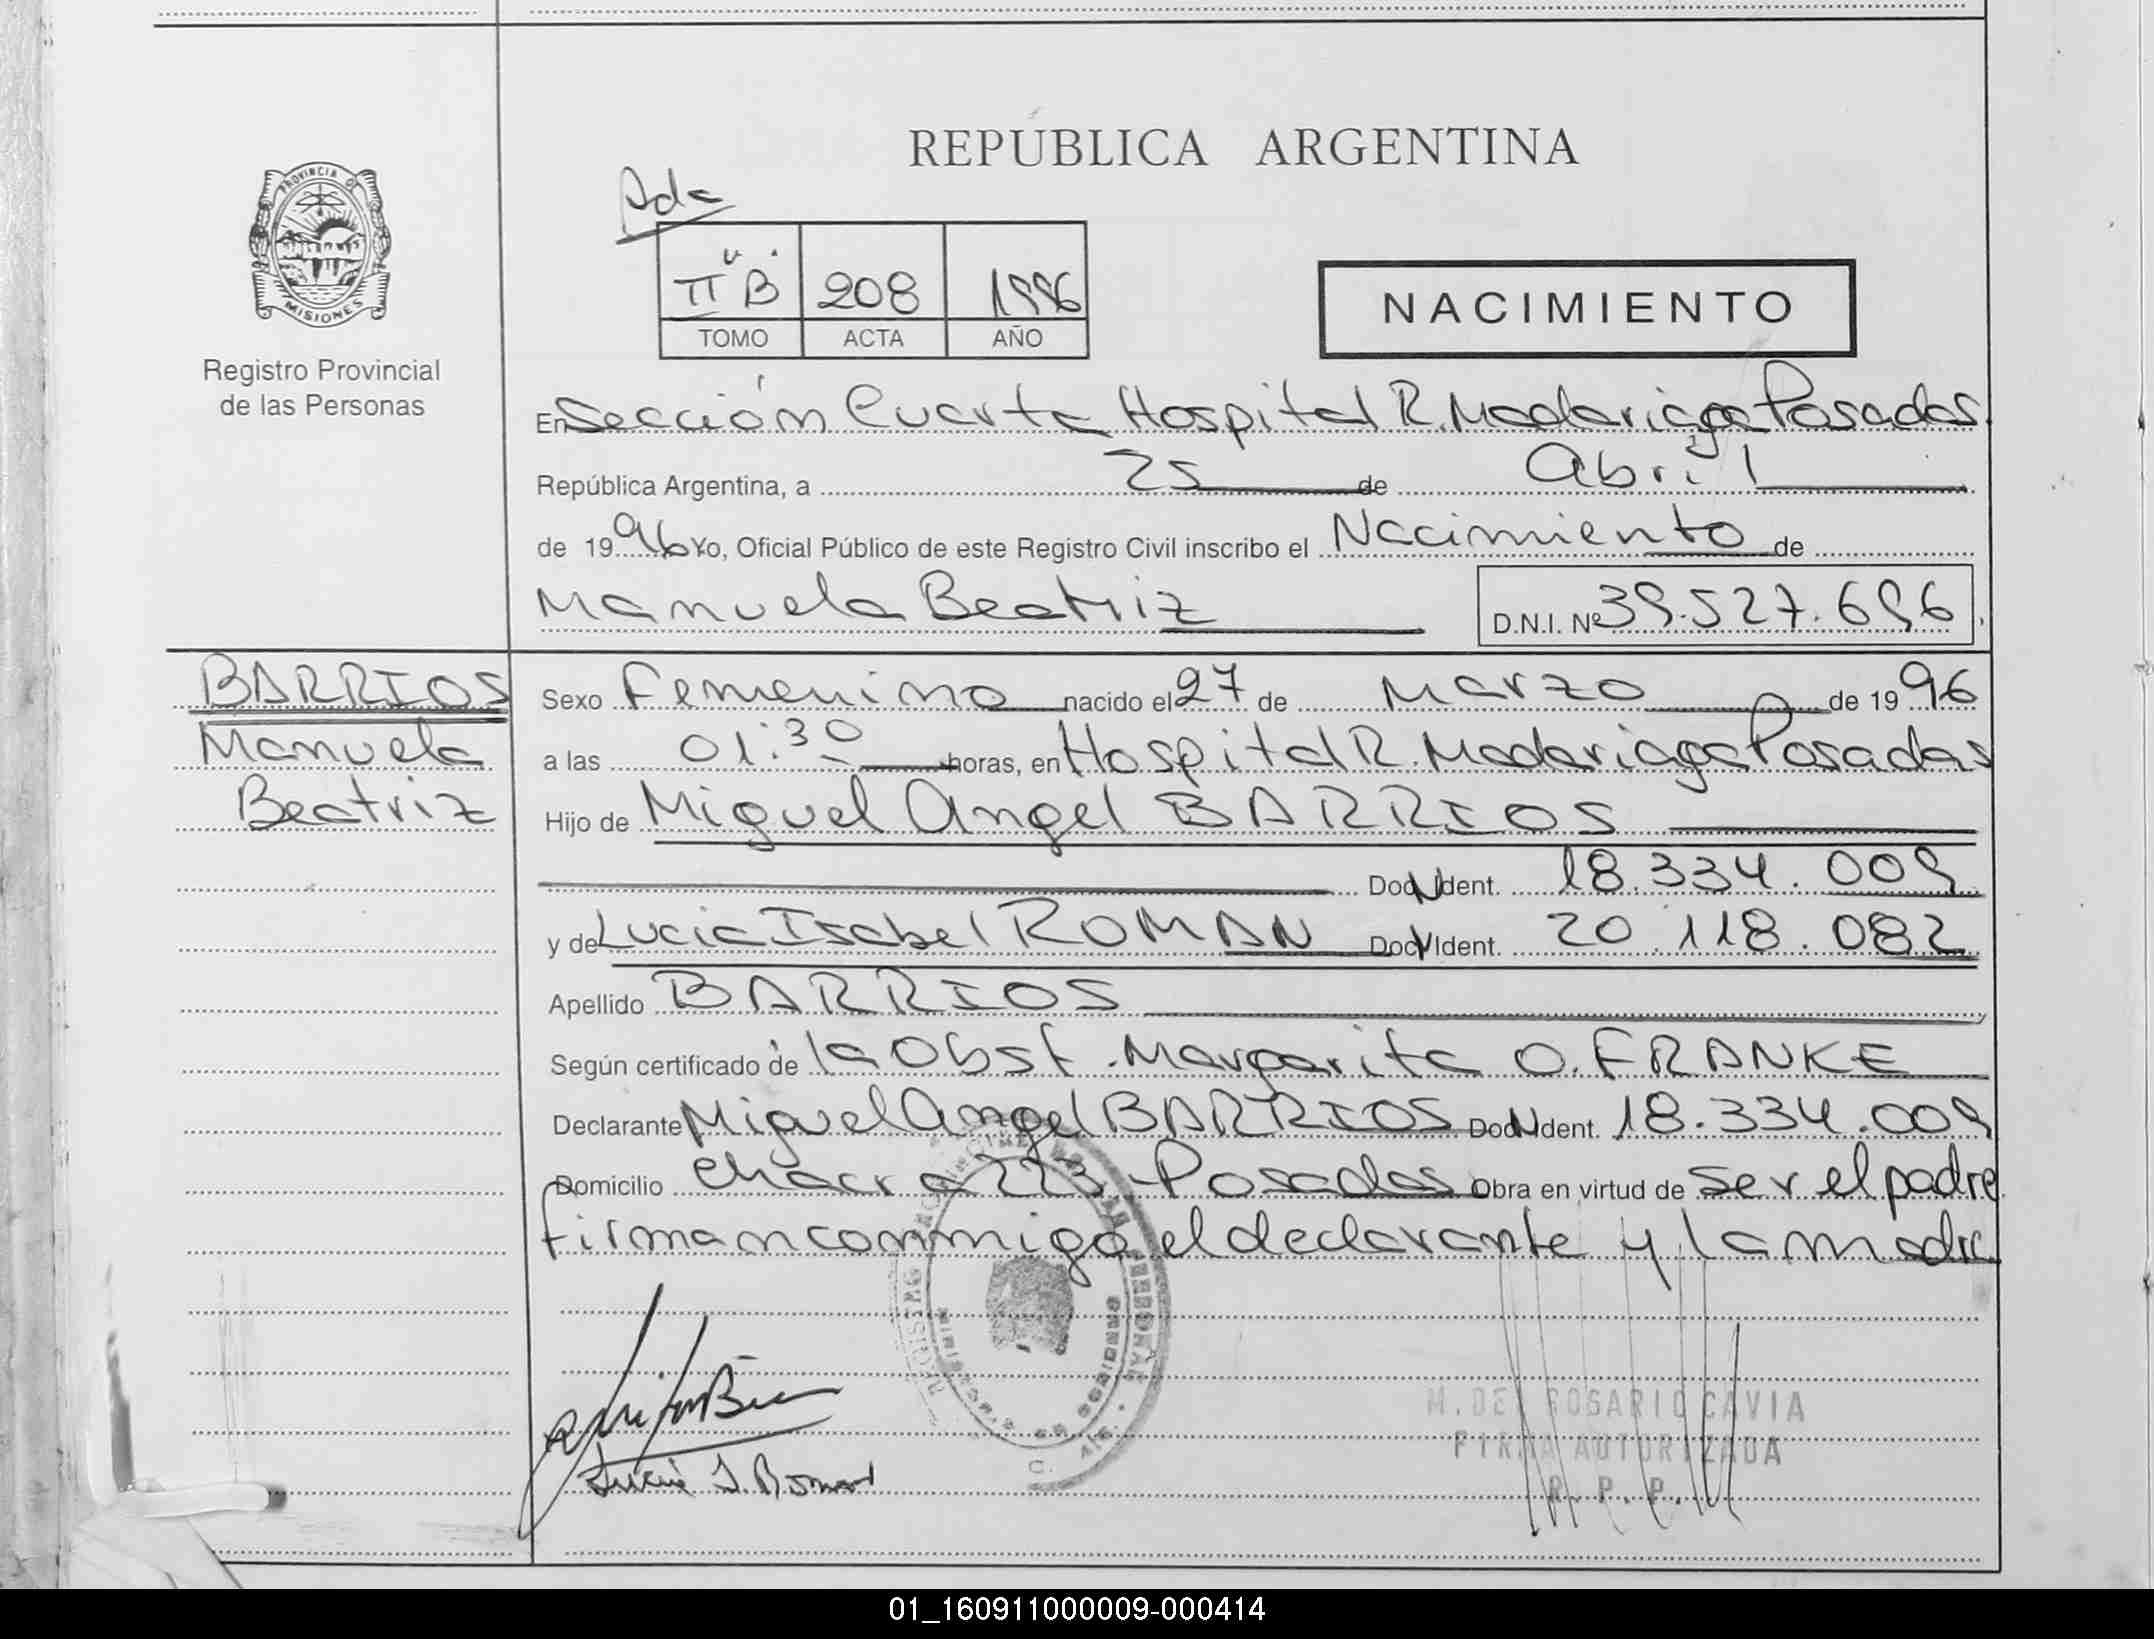 REPÚBLICA ARGENTINA
PROVINCIA D
MISIONES
Registro Provincial
de las Personas
II "B" 208 1996
TOMO ACTA AÑO
NACIMIENTO
En Sección Cuarta Hospital R. Madariaga Posadas.
República Argentina, a 25 de Abril
de 1996 Yo, Oficial Público de este Registro Civil inscribo el Nacimiento de
Manuela Beatriz D.N.I. Nº 39.527.696
BARRIOS
Manuela
Beatriz
Sexo Femenino nacido el 27 de Marzo de 1996
a las 01:30 horas, en Hospital R. Madariaga Posadas
Hijo de Miguel Angel BARRIOS
Doc N Ident. 18.334.009
y de Lucia Isabel ROMAN Doc N Ident. 20.118.082
Apellido BARRIOS
Según certificado de la Obst. Margarita O. FRANKE
Declarante Miguel Angel BARRIOS Doc N Ident. 18.334.009
Domicilio Chacra 223 - Posadas Obra en virtud de ser el padre
firman conmigo el declarante y la madre
Lucia I. Roman
M. DEL ROSARIO CAVIA
FIRMA AUTORIZADA
R. P. P.
01_160911000009-000414